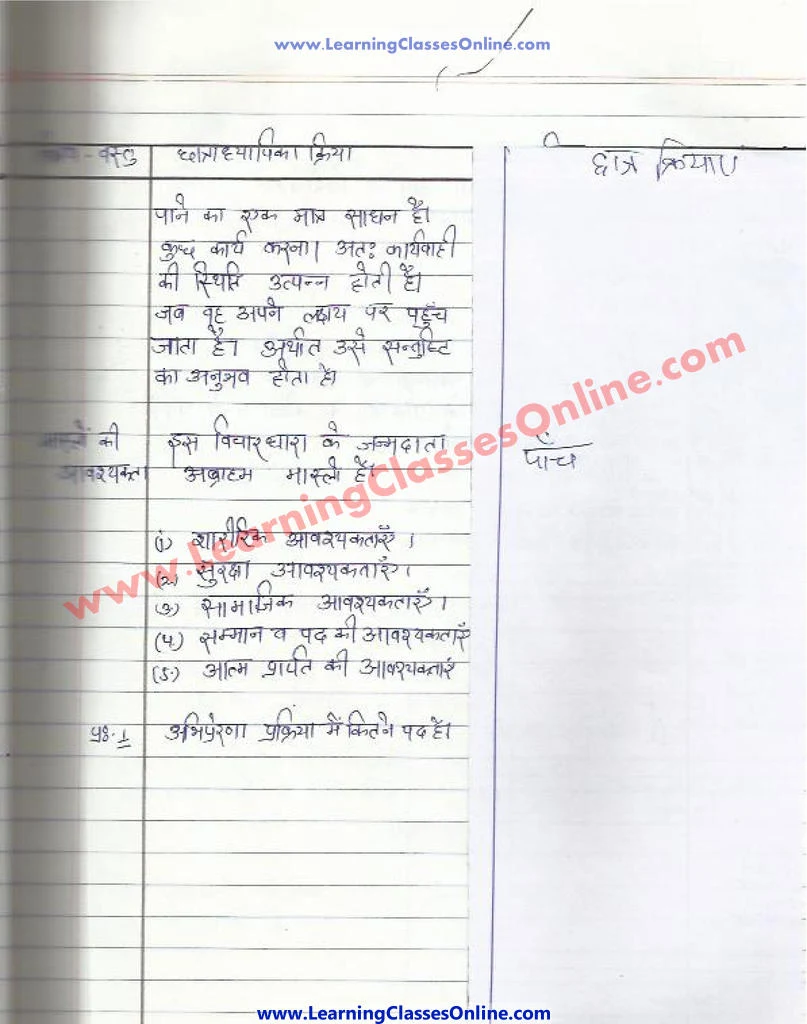 www.LearningClassesOnline.com
वस्तु छात्राध्यापिका क्रिया छात्र क्रियाए
पाने का एक मात्र साधन है।
कुछ कार्य करना। अतः कार्यवाही
की स्थिति उत्पन्न होती है।
जब वह अपने लक्ष्य पर पहुँच
जाता है। अर्थात उसे सन्तुष्टि
का अनुभव होता है।
मास्लों की इस विचारधारा के जन्मदाता पाँच
आवश्यकता अब्राहम मास्लो है।
(1) शारीरिक आवश्यकताएँ।
(2) सुरक्षा आवश्यकताएँ।
(3) सामाजिक आवश्यकताएँ।
(4) सम्मान व पद की आवश्यकताएँ
(5) आत्म की आवश्यकताएँ
प्र.1 अभिप्रेरणा प्रक्रिया में कितने पद है।
www.LearningClassesOnline.com
www.LearningClassesOnline.com